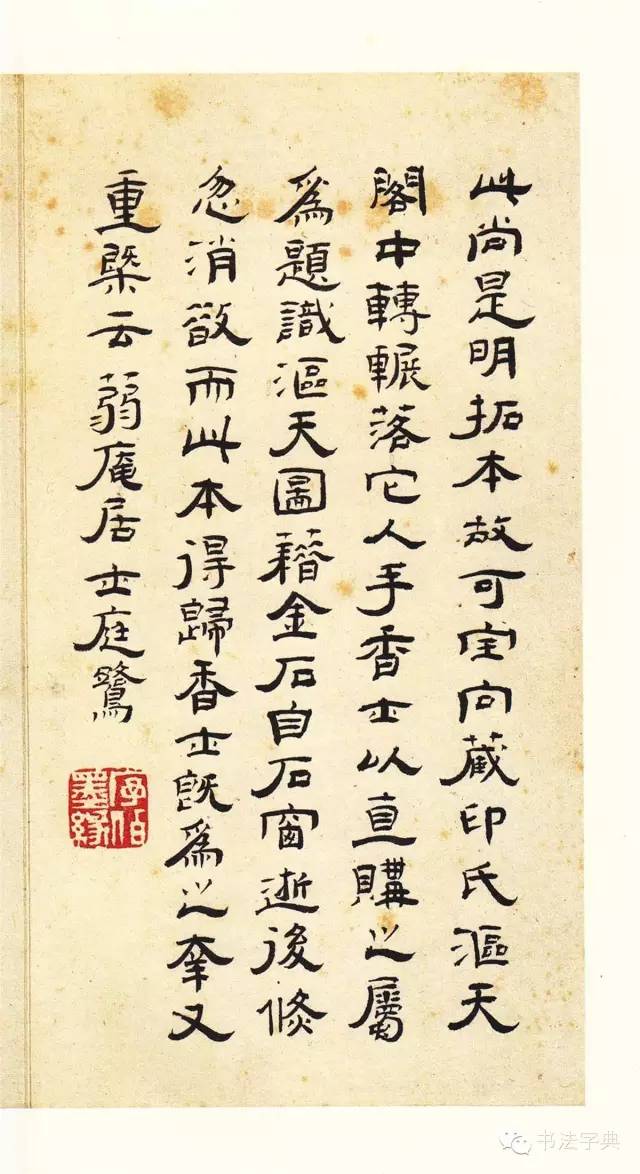 此尚是明拓本故可宝向藏印氏漚天
閣中轉輾落它人手香士以直購之屬
爲題識漚天圖藉金石自石窗逝後倏
忽消散而此本得歸香士旣爲之幸又
重槩云弱庵居士庭鷺
序伯墨緣
书法字典